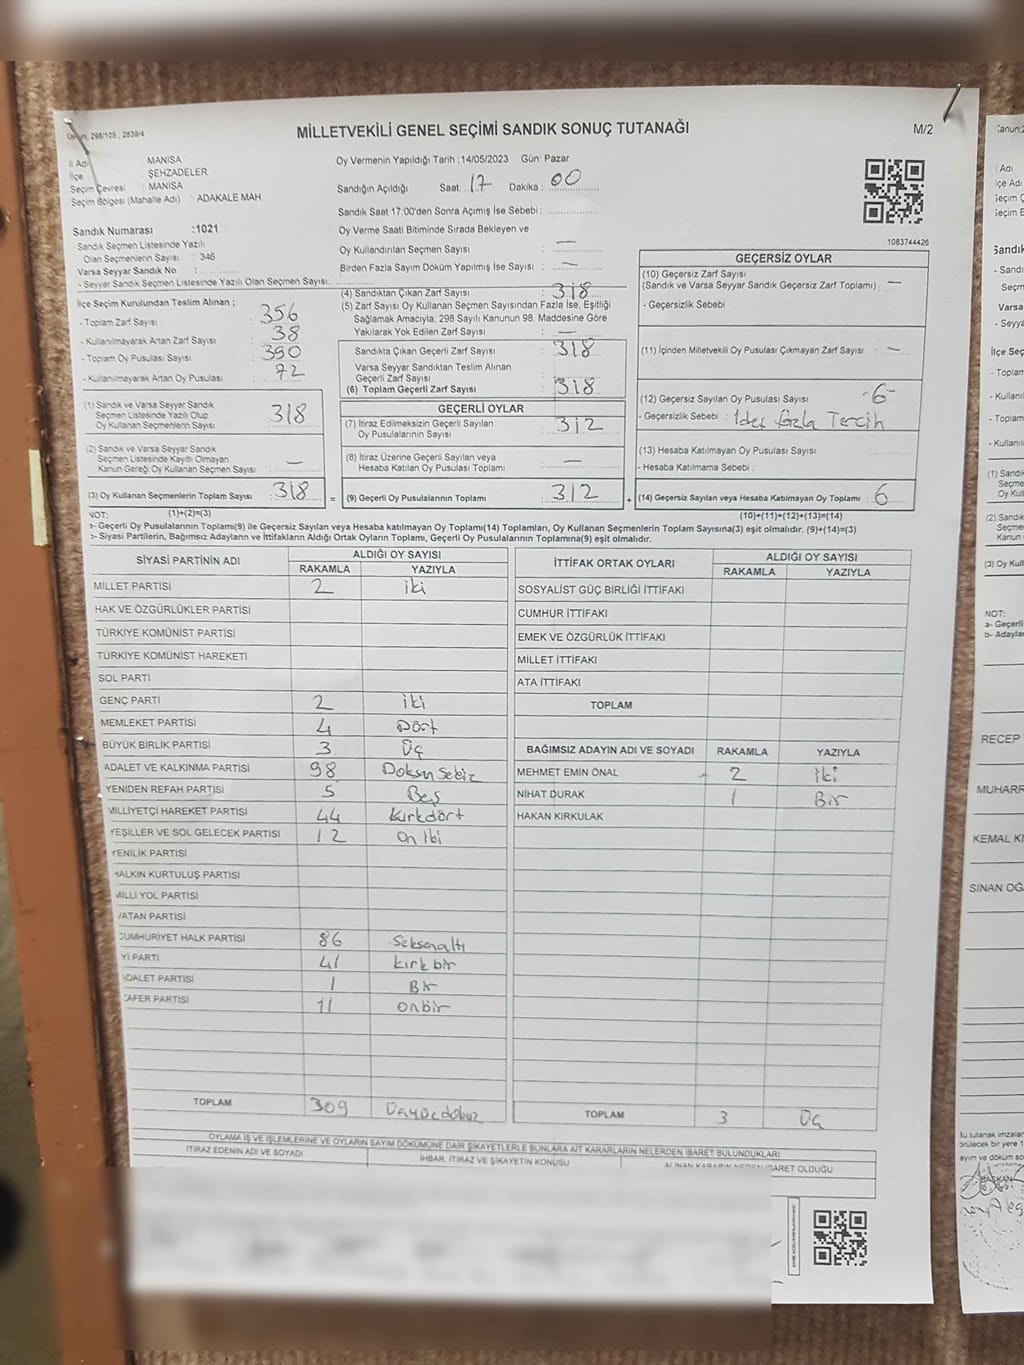 298/105 , 2839/4
MİLLETVEKİLİ GENEL SEÇİMİ SANDIK SONUÇ TUTANAĞI
M/2
İl Adı : MANİSA
İlçe : ŞEHZADELER
Seçim Çevresi : MANİSA
Seçim Bölgesi (Mahalle Adı) : ADAKALE MAH.
Oy Vermenin Yapıldığı Tarih : 14/05/2023 Gün: Pazar
Sandığın Açıldığı Saat: 17 Dakika : 00
Sandık Saat 17:00'den Sonra Açılmış İse Sebebi :
Oy Verme Saati Bitiminde Sırada Bekleyen ve
Oy Kullandırılan Seçmen Sayısı : —
Birden Fazla Sayım Döküm Yapılmış İse Sayısı : —
1083744426
Sandık Numarası :1021
Sandık Seçmen Listesinde Yazılı
Olan Seçmenlerin Sayısı : 346
Varsa Seyyar Sandık No :
- Seyyar Sandık Seçmen Listesinde Yazılı Olan Seçmen Sayısı:
İlçe Seçim Kurulundan Teslim Alınan ;
- Toplam Zarf Sayısı : 356
- Kullanılmayarak Artan Zarf Sayısı : 38
- Toplam Oy Pusulası Sayısı : 390
- Kullanılmayarak Artan Oy Pusulası : 72
(1) Sandık ve Varsa Seyyar Sandık
Seçmen Listesinde Yazılı Olup
Oy Kullanan Seçmenlerin Sayısı : 318
(2) Sandık ve Varsa Seyyar Sandık
Seçmen Listesinde Kayıtlı Olmayan
Kanun Gereği Oy Kullanan Seçmen Sayısı : —
(3) Oy Kullanan Seçmenlerin Toplam Sayısı : 318
(4) Sandıktan Çıkan Zarf Sayısı : 318
(5) Zarf Sayısı Oy Kullanan Seçmen Sayısından Fazla İse, Eşitliği
Sağlamak Amacıyla; 298 Sayılı Kanunun 98. Maddesine Göre
Yakılarak Yok Edilen Zarf Sayısı : —
Sandıkta Çıkan Geçerli Zarf Sayısı : 318
Varsa Seyyar Sandıktan Teslim Alınan
Geçerli Zarf Sayısı :
(6) Toplam Geçerli Zarf Sayısı : 318
GEÇERLİ OYLAR
(7) İtiraz Edilmeksizin Geçerli Sayılan
Oy Pusulalarının Sayısı : 312
(8) İtiraz Üzerine Geçerli Sayılan veya
Hesaba Katılan Oy Pusulası Toplamı : —
= (9) Geçerli Oy Pusulalarının Toplamı : 312
GEÇERSİZ OYLAR
(10) Geçersiz Zarf Sayısı
(Sandık ve Varsa Seyyar Sandık Geçersiz Zarf Toplamı) : —
- Geçersizlik Sebebi :
(11) İçinden Milletvekili Oy Pusulası Çıkmayan Zarf Sayısı : —
(12) Geçersiz Sayılan Oy Pusulası Sayısı : -6-
- Geçersizlik Sebebi : 1den fazla Tercih
(13) Hesaba Katılmayan Oy Pusulası Sayısı :
- Hesaba Katılmama Sebebi :
+ (14) Geçersiz Sayılan veya Hesaba Katılmayan Oy Toplamı : 6
NOT: (1)+(2)=(3) (10)+(11)+(12)+(13)=(14)
a- Geçerli Oy Pusulalarının Toplamı(9) ile Geçersiz Sayılan veya Hesaba katılmayan Oy Toplamı(14) Toplamları, Oy Kullanan Seçmenlerin Toplam Sayısına(3) eşit olmalıdır. (9)+(14)=(3)
b- Siyasi Partilerin, Bağımsız Adayların ve İttifakların Aldığı Ortak Oyların Toplamı, Geçerli Oy Pusulalarının Toplamına(9) eşit olmalıdır.
SİYASİ PARTİNİN ADI ALDIĞI OY SAYISI
RAKAMLA YAZIYLA
MİLLET PARTİSİ 2 iki
HAK VE ÖZGÜRLÜKLER PARTİSİ
TÜRKİYE KOMÜNİST PARTİSİ
TÜRKİYE KOMÜNİST HAREKETİ
SOL PARTİ
GENÇ PARTİ 2 iki
MEMLEKET PARTİSİ 4 Dört
BÜYÜK BİRLİK PARTİSİ 3 Üç
ADALET VE KALKINMA PARTİSİ 98 Doksan Sekiz
YENİDEN REFAH PARTİSİ 5 Beş
MİLLİYETÇİ HAREKET PARTİSİ 44 Kırkdört
YEŞİLLER VE SOL GELECEK PARTİSİ 12 on iki
YENİLİK PARTİSİ
HALKIN KURTULUŞ PARTİSİ
MİLLİ YOL PARTİSİ
VATAN PARTİSİ
CUMHURİYET HALK PARTİSİ 86 Seksenaltı
İYİ PARTİ 41 kırk bir
ADALET PARTİSİ 1 Bir
ZAFER PARTİSİ 11 onbir
TOPLAM 309 Üçyüzdokuz
İTTİFAK ORTAK OYLARI ALDIĞI OY SAYISI
RAKAMLA YAZIYLA
SOSYALİST GÜÇ BİRLİĞİ İTTİFAKI
CUMHUR İTTİFAKI
EMEK VE ÖZGÜRLÜK İTTİFAKI
MİLLET İTTİFAKI
ATA İTTİFAKI
TOPLAM
BAĞIMSIZ ADAYIN ADI VE SOYADI RAKAMLA YAZIYLA
MEHMET EMİN ÖNAL 2 iki
NİHAT DURAK 1 Bir
HAKAN KIRKULAK
TOPLAM 3 Üç
OYLAMA İŞ VE İŞLEMLERİNE VE OYLARIN SAYIM DÖKÜMÜNE DAİR ŞİKAYETLERLE BUNLARA AİT KARARLARIN NELERDEN İBARET BULUNDUKLARI
İTİRAZ EDENİN ADI VE SOYADI İHBAR, İTİRAZ VE ŞİKAYETİN KONUSU ALINAN KARARIN NEDEN İBARET OLDUĞU
RECEP
MUHARR
KEMAL KI
SİNAN OĞ